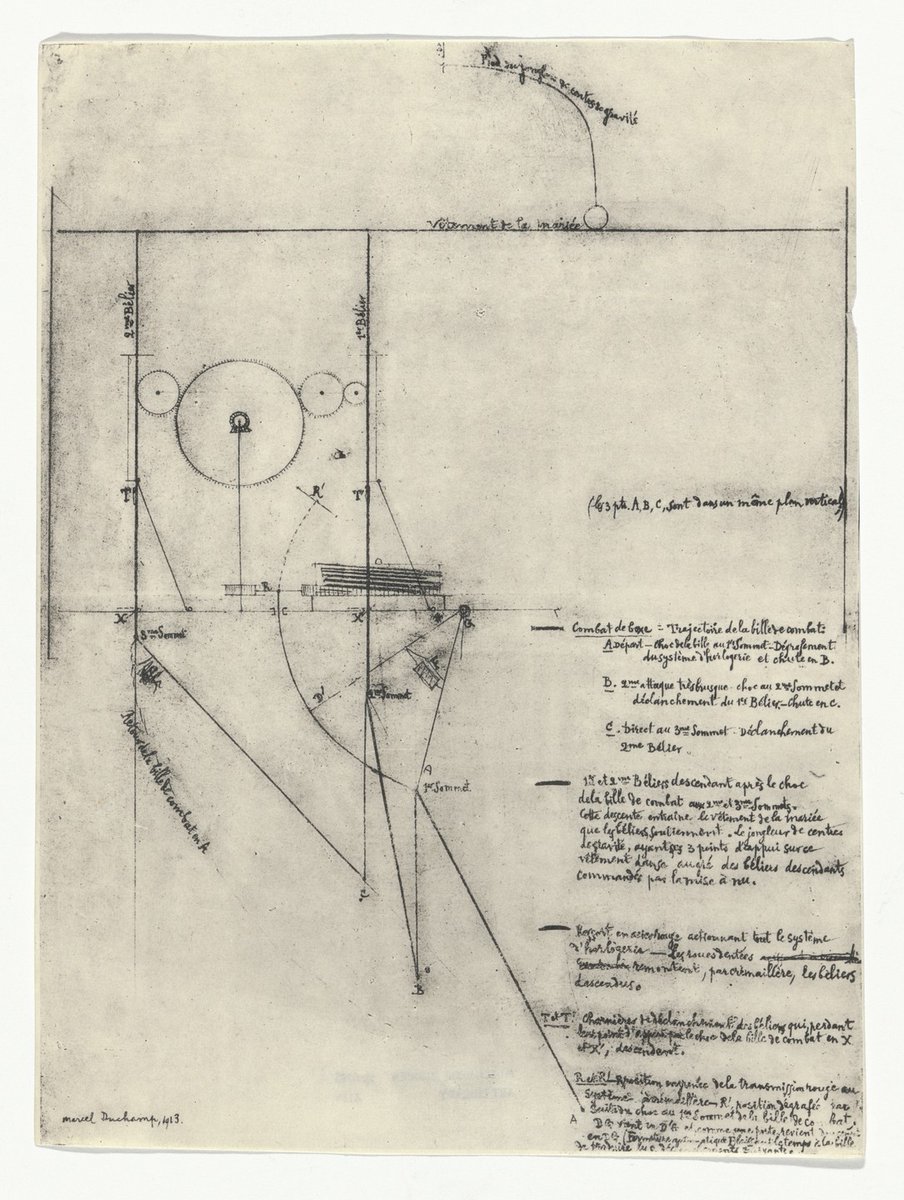 Pied du jongleur de centres de gravité
Vêtement de la mariée
2me Bélier
1er Bélier
R'
T'
T
(les 3 pts. A, B, C, sont dans un même plan vertical)
R
C
X'
X
G
3me Sommet
D'
2me Sommet
A
1er Sommet
Retour de la bille de combat en A
C
B
A
Combat de boxe = Trajectoire de la bille de combat:
A Départ — Choc de la bille au 1er Sommet — Dégrafement
du système d'horlogerie et chute en B.
B. 2me attaque très brusque choc au 2me Sommet et
déclanchement du 1er Bélier — Chute en C.
C. Direct au 3me Sommet Déclanchement du
2me Bélier.
1er et 2me Béliers descendant après le choc
de la bille de combat aux 2me et 3me Sommets.
Cette descente entraîne le vêtement de la mariée
que les béliers soutiennent. Le jongleur de centres
de gravité, ayant ses 3 points d'appui sur ce
vêtement danse au gré des béliers descendants
commandés par la mise à nu.
Ressort en actionnant tout le système
d'horlogerie — Les roues dentées
remontent, par crémaillère, les béliers
descendus.
T et T' Charnières de déclanchement des béliers qui, perdant
leur point d'appui par le choc de la bille de combat en X
et X', descendent.
R et R' — Position engrenée de la transmission rouge au
système à crémaillère — R', position dégrafée par
suite du choc au 1er Sommet de la bille de combat.
et comme une porte revient
le temps à la bille
de
marcel Duchamp, 1913.